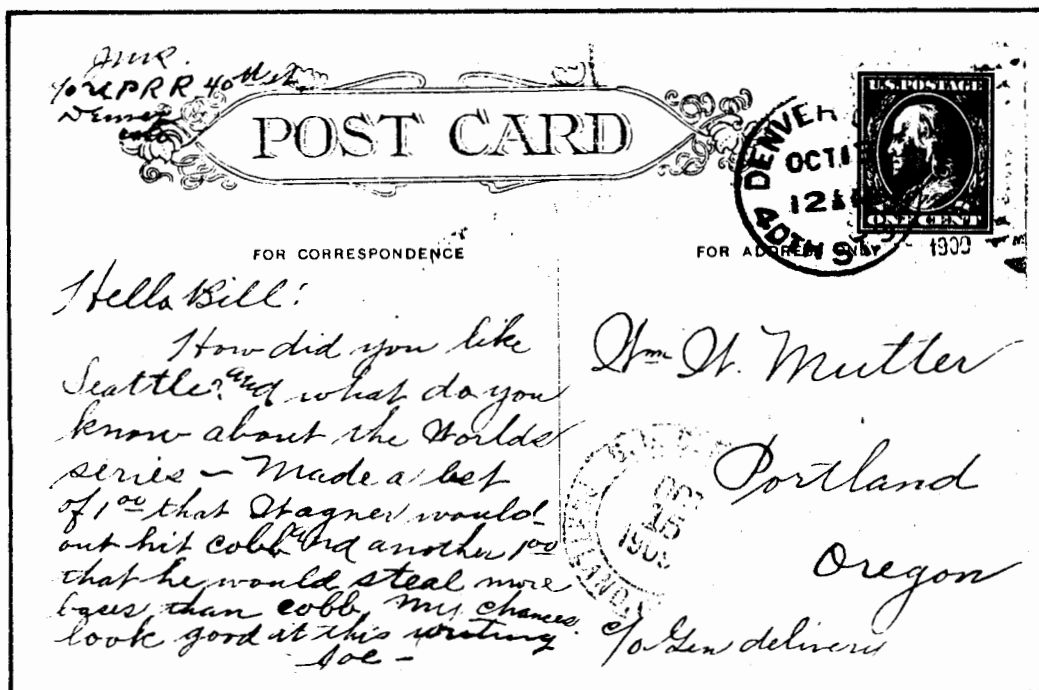 c/o U P R R 40th st
Denver
Colo
POST CARD
DENVER
OCT 1
12
40TH S
U.S. POSTAGE
ONE CENT
1909
FOR CORRESPONDENCE
FOR ADDRESS ONLY
Hello Bill!
How did you like
Seattle? and what do you
know about the Worlds
series – Made a bet
of 1 00 that Wagner would
out hit cobb and another 1 00
that he would steal more
bases than cobb, my chances
look good at this writing
Joe –
Wm W. Mutter
Portland
Oregon
c/o Gen delivery
OCT
15
1909